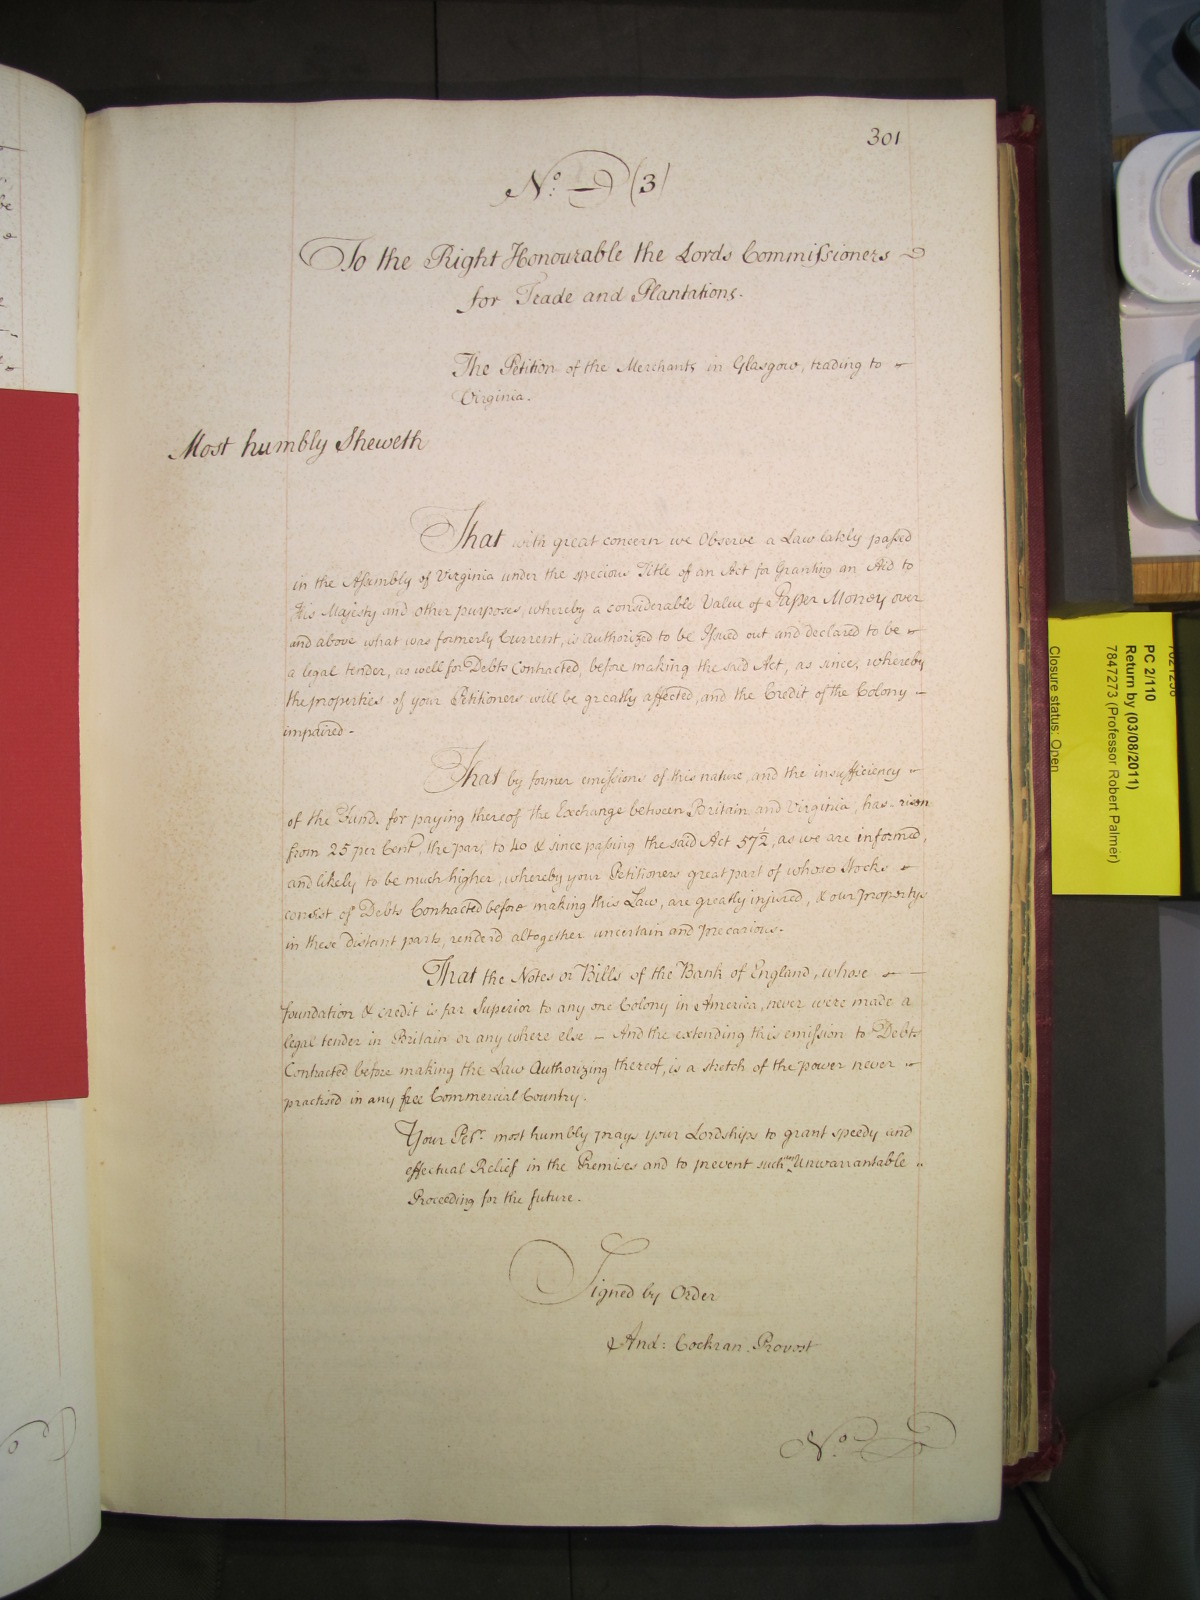 301
No. (3)
To the Right Honourable the Lords Commissioners
for Trade and Plantations.
The Petition of the Merchants in Glasgow, trading to
Virginia.
Most humbly Sheweth
That with great concern we Observe a Law lately passed
in the Assembly of Virginia under the specious Title of an Act for Granting an Aid to
His Majesty and other purposes, whereby a considerable Value of Paper Money over
and above what was formerly Current, is authorized to be Issued out and declared to be
a legal tender, as well for Debts Contracted, before making the said Act, as since, whereby
the properties of your Petitioners will be greatly affected, and the Credit of the Colony
impaired -
That by former emissions of this nature, and the insufficiency
of the Funds for paying thereof the Exchange between Britain and Virginia, has risen
from 25 per Cent, the par, to 40 & since passing the said Act 57½, as we are informed,
and likely to be much higher, whereby your Petitioners great part of whose Stocks
consist of Debts Contracted before making this Law, are greatly injured, & our Propertys
in these distant parts, renderd altogether uncertain and precarious.
That the Notes or Bills of the Bank of England, whose
foundation & credit is far Superior to any one Colony in America, never were made a
legal tender in Britain or any where else - And the extending this emission to Debts
Contracted before making the Law Authorizing thereof, is a stretch of the power never
practised in any free Commercial Country.
Your Petrs. most humbly prays your Lordships to grant speedy and
effectual Relief in the Premises and to prevent such Unwarrantable
Proceeding for the future.
Signed by Order
And: Cockran Provost
No.
PC 2/110
Return by (03/08/2011)
7847273 (Professor Robert Palmer)
Closure status: Open